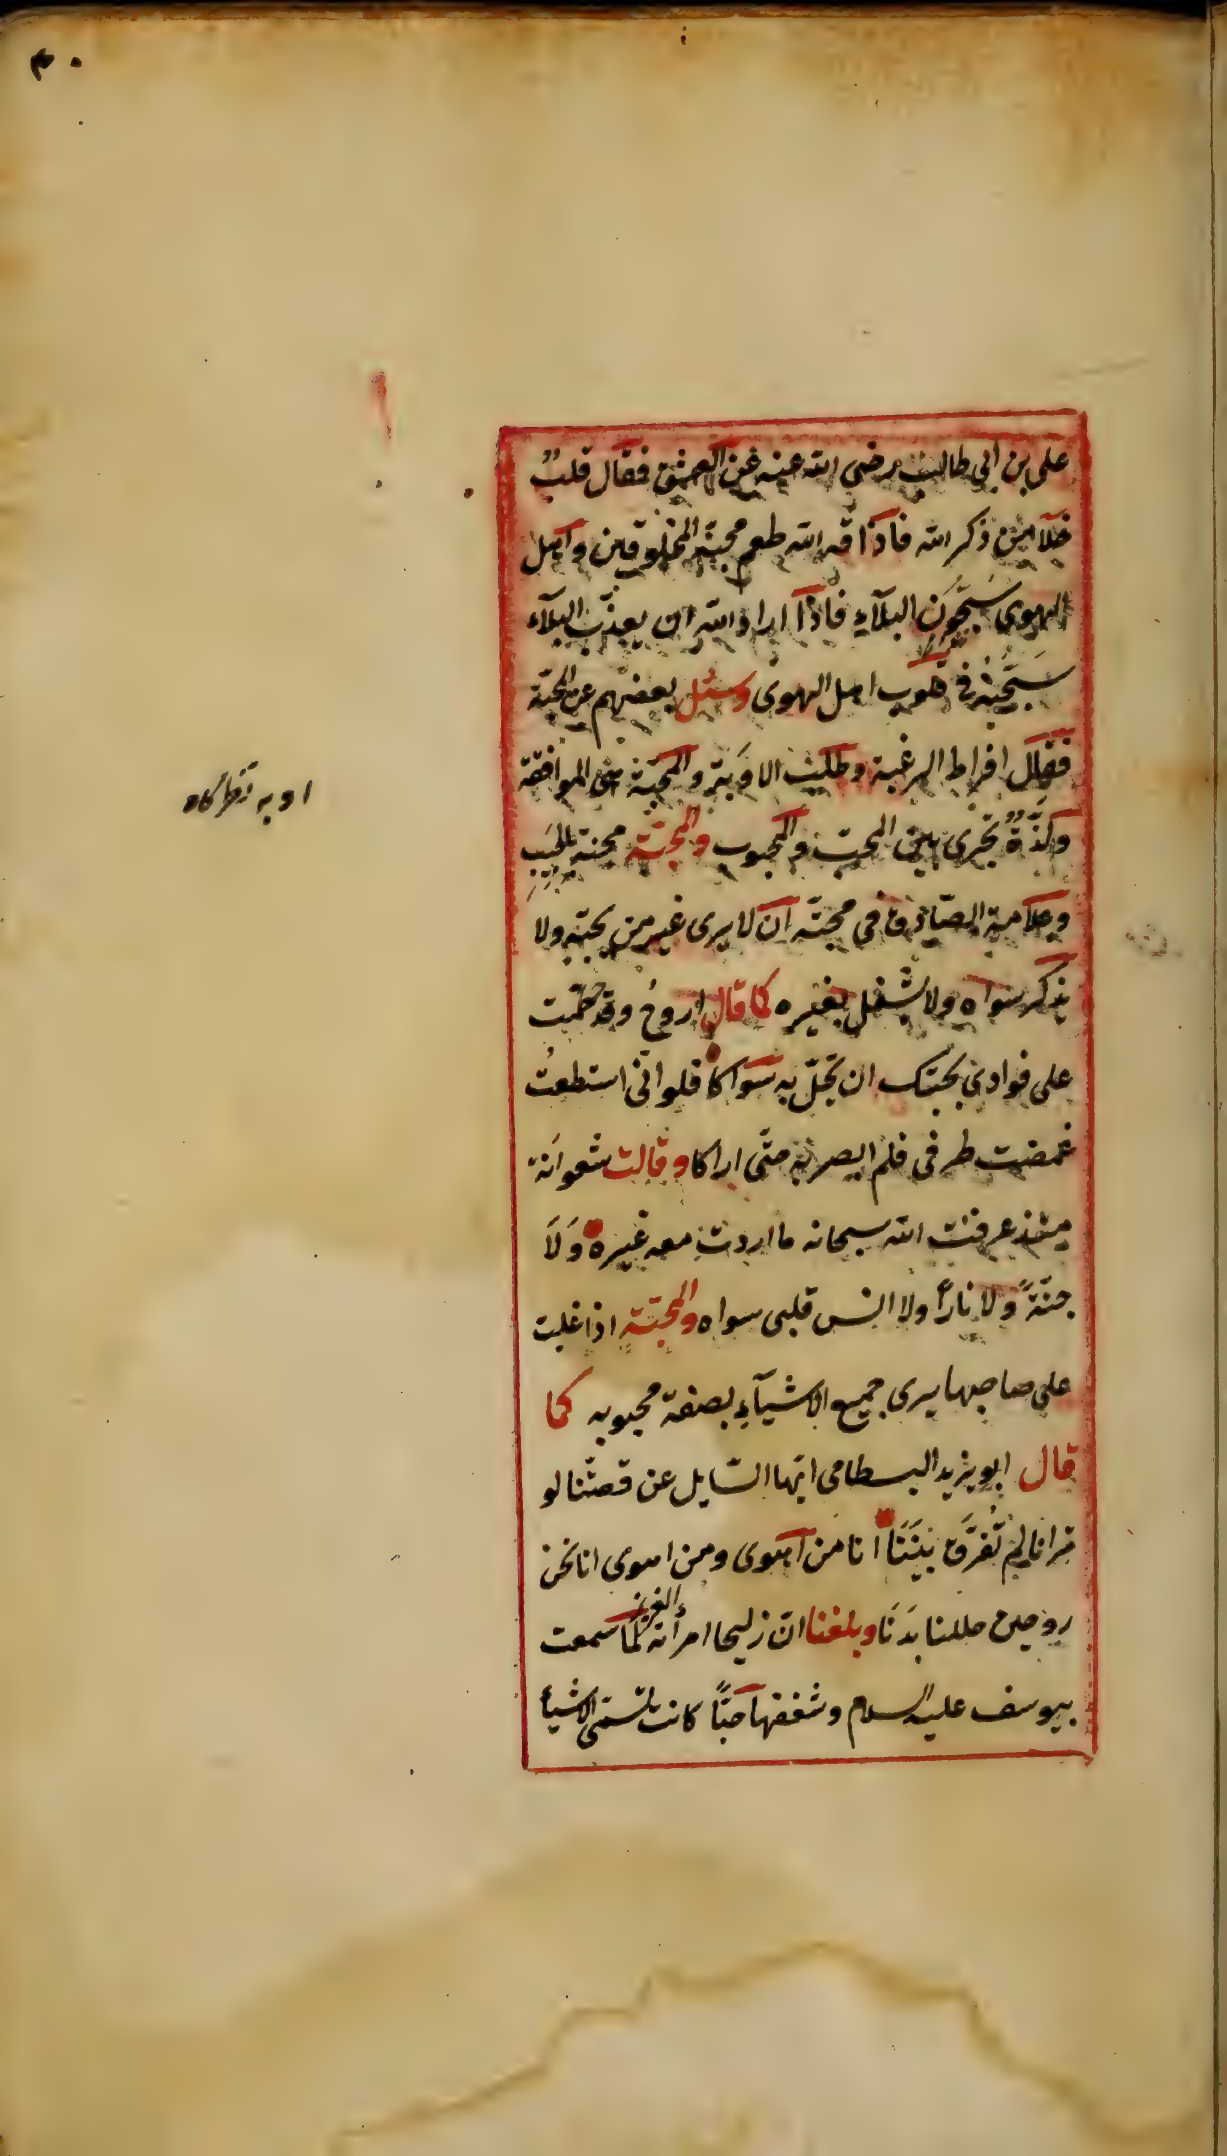 ٤٠
علی بن ابی طالب رضی الله عنه عن العشق فقال قلبٌ
خلا من ذكر الله فاذاقه الله طعم محبة المخلوقين و اهل
الهوى سجون البلآء فاذا اراد الله ان يعذّب البلآء
سجّنه فى قلوب اهل الهوى وسئل بعضهم عن المحبّة
فقال افراط الرغبة و طلب الاوبة والمحبّة هى الموافقة
ولذّةٌ تجرى بين المحبّ والمحبوب والمحبّة محنة
وعلامة الصّادق فى محبّته ان لا يرى غير من يحبّه ولا
يذكر سواه ولا يشغل بغيره كما قال اروح وقد ختمت
على فوادى بحبّك ان يحلّ به سواكا فلوانّى استطعتُ
غمضت طرفى فلم ابصر به حتّى اراكا وقالت شعوانة
منذ عرفت الله سبحانه ما اردت معه غيره وَلَا
جنّةً ولا ناراً ولا انس قلبى سواه والمحبّة اذا غلبت
على صاحبها يرى جميع الاشيآء بصفة محبوبه كما
قال ابو يزيد البسطامى ايّها السّايل عن قصّتنا لو
ترانا لم تُفرّق بيننا انا من اهوى ومن اهوى انا نحن
روحين حللنا بدنا وبلغنا انّ زليخا امرأة العزيز لمّا سمعت
بيوسف عليه السلام وشغفها حبّاً كانت تسمّى الاشيآء